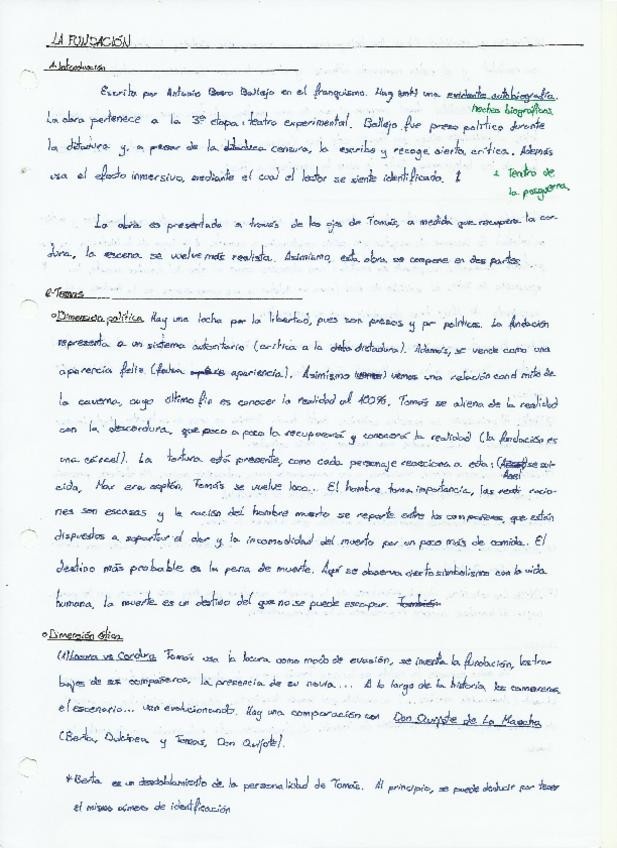 LA FUNDACIÓN
A-Introducción
Escrita por Antonio Buero Ballejo en el franquismo. Hay una evidente autobiografía.
Hechos biográficos
La obra pertenece a la 3ª etapa: teatro experimental. Ballejo fue preso político durante
la dictadura y, a pesar de la censura, la escribe y recoge cierta crítica. Además
usa el efecto inmersivo, mediante el cual el lector se siente identificado.
Teatro de
la posguerra
La obra es presentada a través de los ojos de Tomás, a medida que recupera la cor-
dura, la escena se vuelve más realista. Asimismo, esta obra se compone en dos partes.
Temas
Dimensión política Hay una lucha por la libertad, pues son presos y por políticos. La fundación
representa a un sistema autoritario (crítica a la dictadura). Además, se vende como una
apariencia feliz (falsa apariencia). Asimismo vemos una relación con el mito de
la caverna, cuyo último fin es conocer la realidad al 100%. Tomás se aliena de la realidad
con la descordura, que poco a poco la recuperará y conocerá la realidad (la fundación es
una cárcel). La tortura está presente, como cada personaje reacciona a esta: se sui-
Asel
cida, Max era soplón, Tomás se vuelve loco... El hombre toma importancia, las racio-
nes son escasas y la ración del hombre muerto se reparte entre los compañeros, que están
dispuestos a soportar el olor y la incomodidad del muerto por un poco más de comida. El
destino más probable es la pena de muerte. Aquí se observa cierto simbolismo con la vida
humana, la muerte es un destino del que no se puede escapar. También
Dimensión ética
(1) Locura vs Cordura Tomás usa la locura como modo de evasión, se inventa la fundación, los tra-
bajos de sus compañeros, la presencia de su novia... A lo largo de la historia, los camareros,
el escenario... van evolucionando. Hay una comparación con Don Quijote de La Mancha
(Berta, Dulcinea y Tomas, Don Quijote).
*Berta es un desdoblamiento de la personalidad de Tomás. Al principio, se puede deducir por tener
el mismo número de identificación